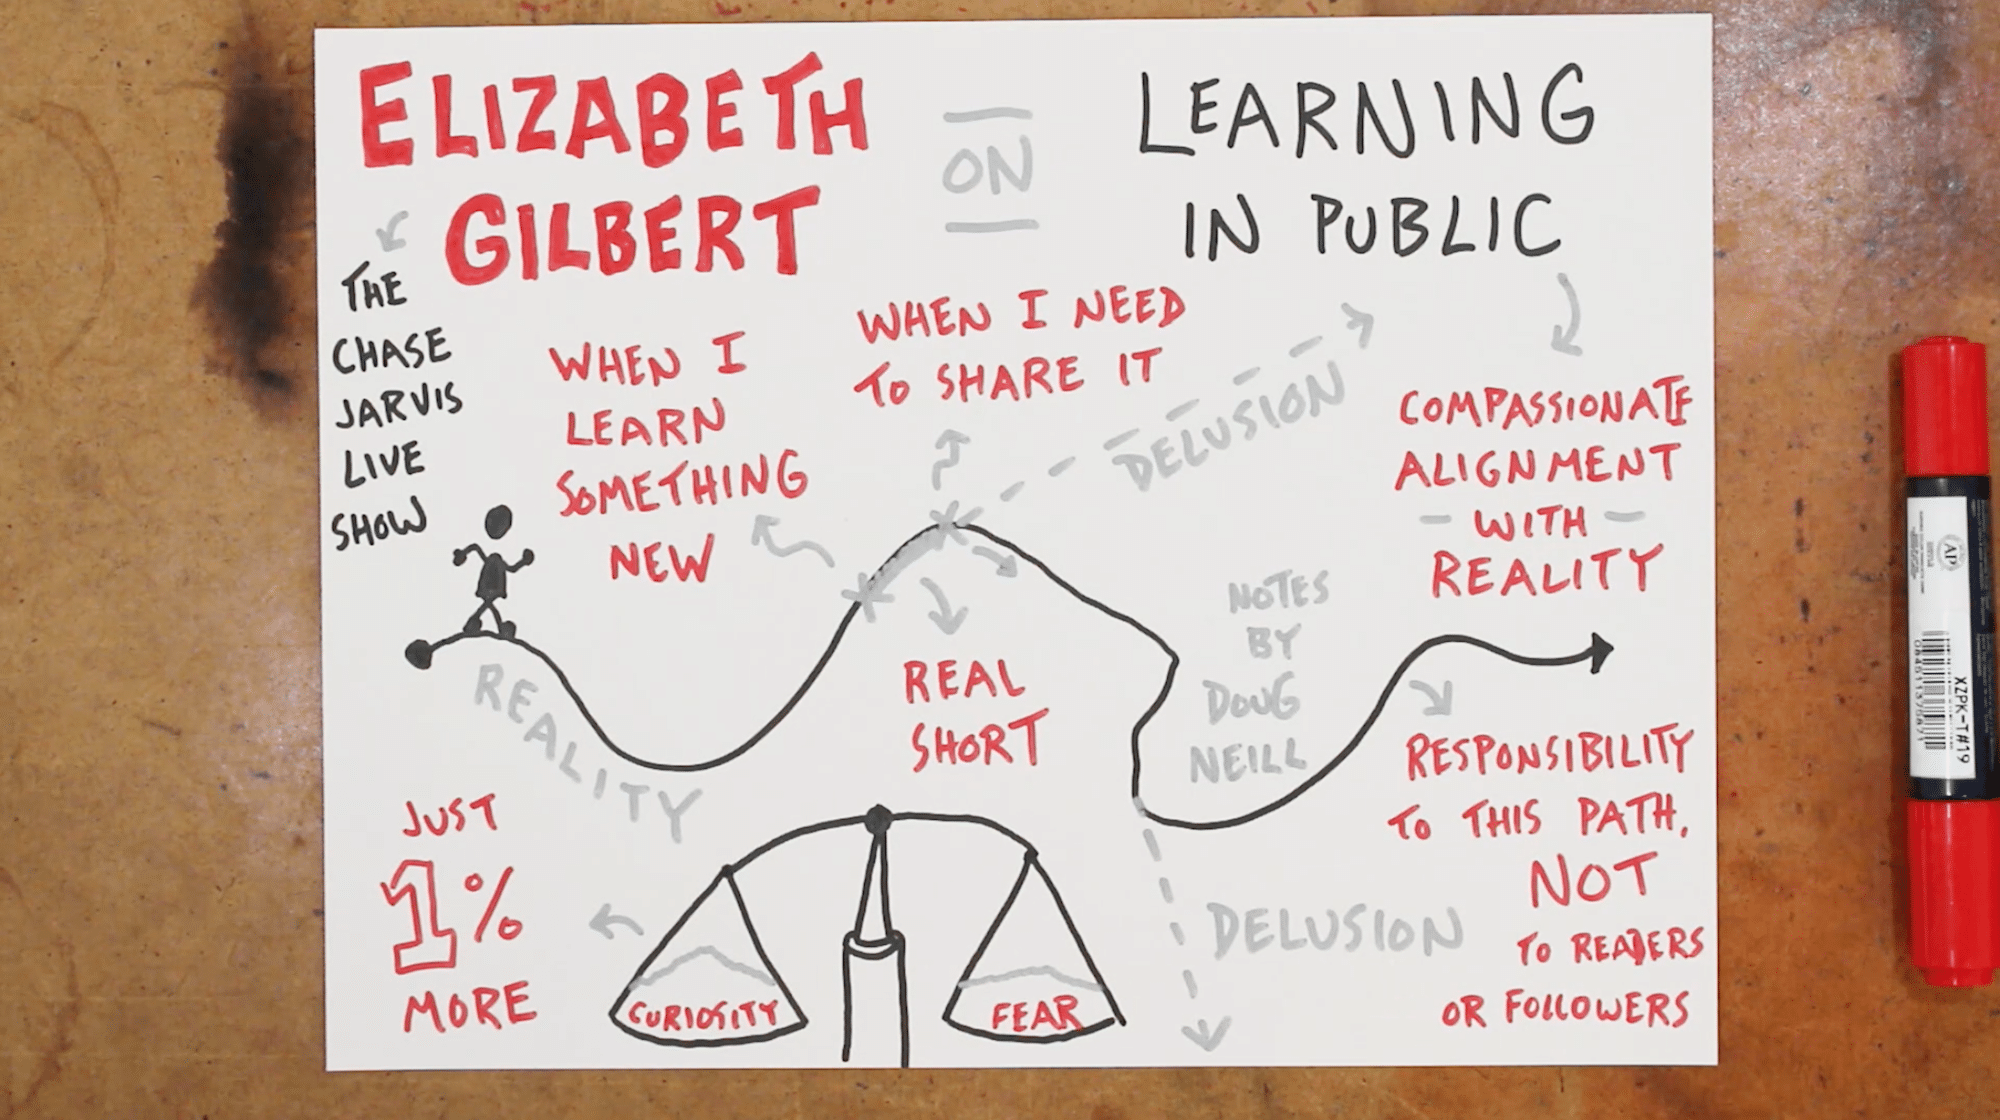 ELIZABETH
GILBERT
ON
LEARNING
IN PUBLIC
THE
CHASE
JARVIS
LIVE
SHOW
WHEN I
LEARN
SOMETHING
NEW
WHEN I NEED
TO SHARE IT
DELUSION
COMPASSIONATE
ALIGNMENT
- WITH -
REALITY
REALITY
REAL
SHORT
NOTES
BY
DOUG
NEILL
RESPONSIBILITY
TO THIS PATH,
NOT
TO READERS
OR FOLLOWERS
JUST
1%
MORE
CURIOSITY
FEAR
DELUSION
AP
XZPK-T#19